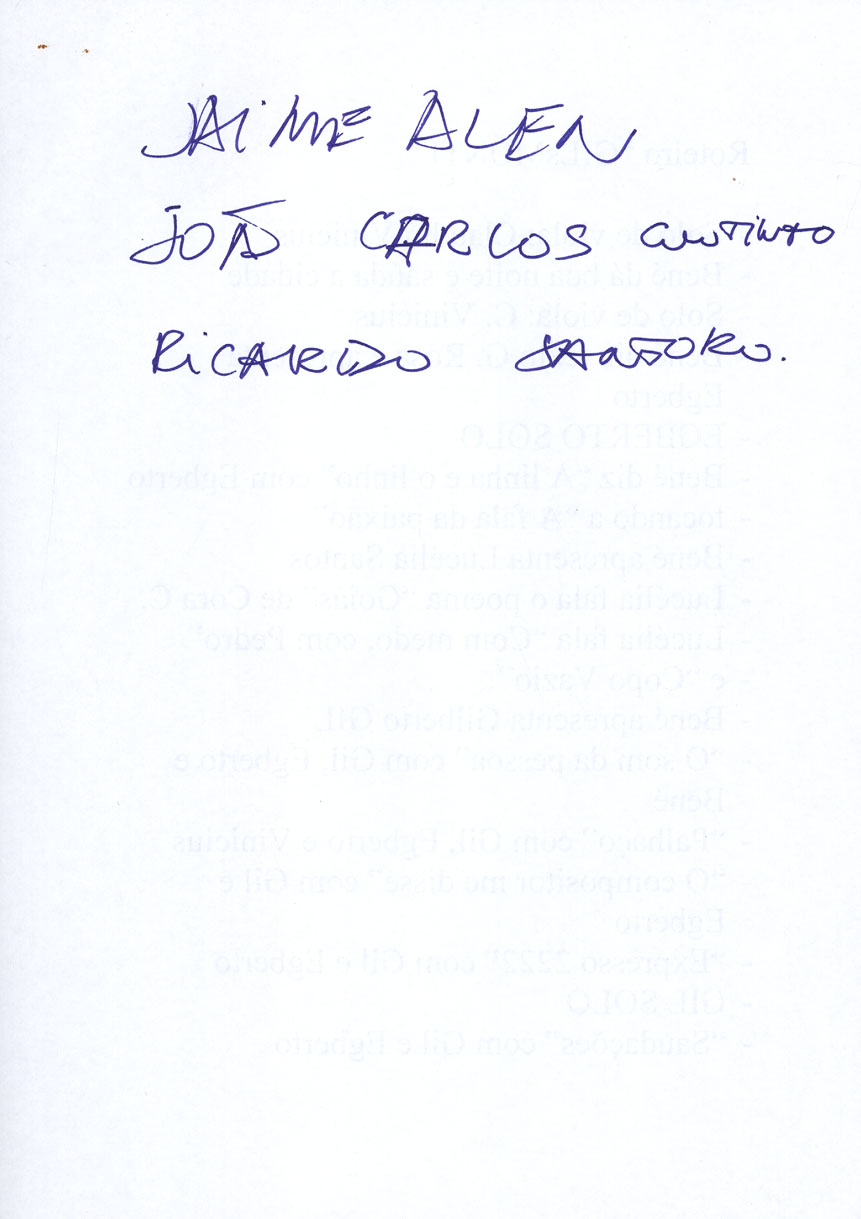 JAIME ALEN
JOÃO CARLOS COUTINHO
RICARDO SANTORO.
Roteiro
- Bené dá boa noite e saúda a cidade
- Solo de viola: C. Vinicius
Egberto
- EGBERTO SOLO
- Bené diz "A linha e o linho" com Egberto
- tocando a "A fala da paixão"
- Bené apresenta Lucélia Santos
- Lucélia fala o poema "Goiás" de Cora C.
- Lucélia fala "Com medo, com Pedro"
- e "Copo Vazio"
- Bené apresenta Gilberto GIL
- "O som da pessoa" com Gil, Egberto e
Bené
- "Palhaço" com Gil, Egberto e Vinícius
- "O compositor me disse" com Gil e
Egberto
- "Expresso 2222" com Gil e Egberto
- GIL SOLO
- "Saudações" com Gil e Egberto